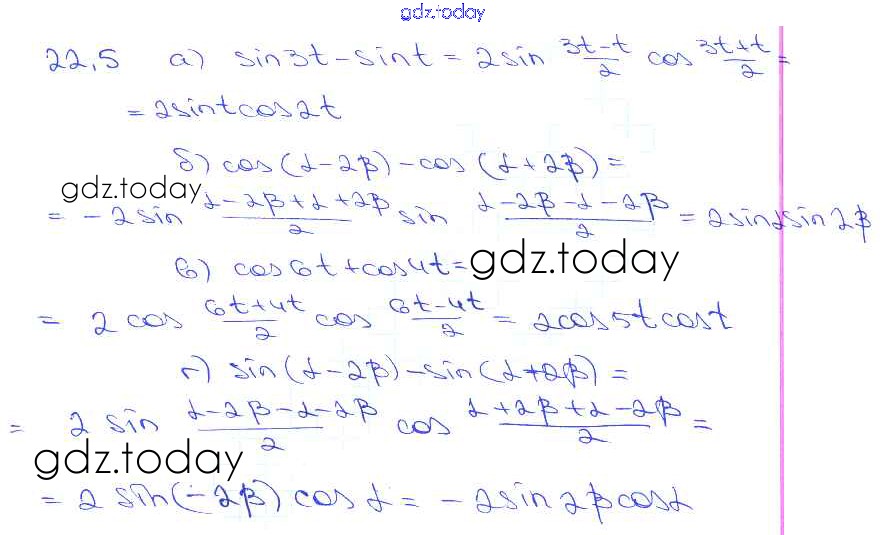 gdz.today
22,5 а) sin3t - sint = 2sin (3t-t)/2 cos (3t+t)/2 =
= 2sintcos2t
б) cos(α-2β) - cos(α+2β) =
gdz.today
= -2sin (α-2β+α+2β)/2 sin (α-2β-α-2β)/2 = 2sinαsin2β
в) cos6t + cos4t =
gdz.today
= 2cos (6t+4t)/2 cos (6t-4t)/2 = 2cos5tcost
г) sin(α-2β) - sin(α+2β) =
= 2sin (α-2β-α-2β)/2 cos (α+2β+α-2β)/2 =
gdz.today
= 2sin(-2β)cosα = -2sin2βcosα